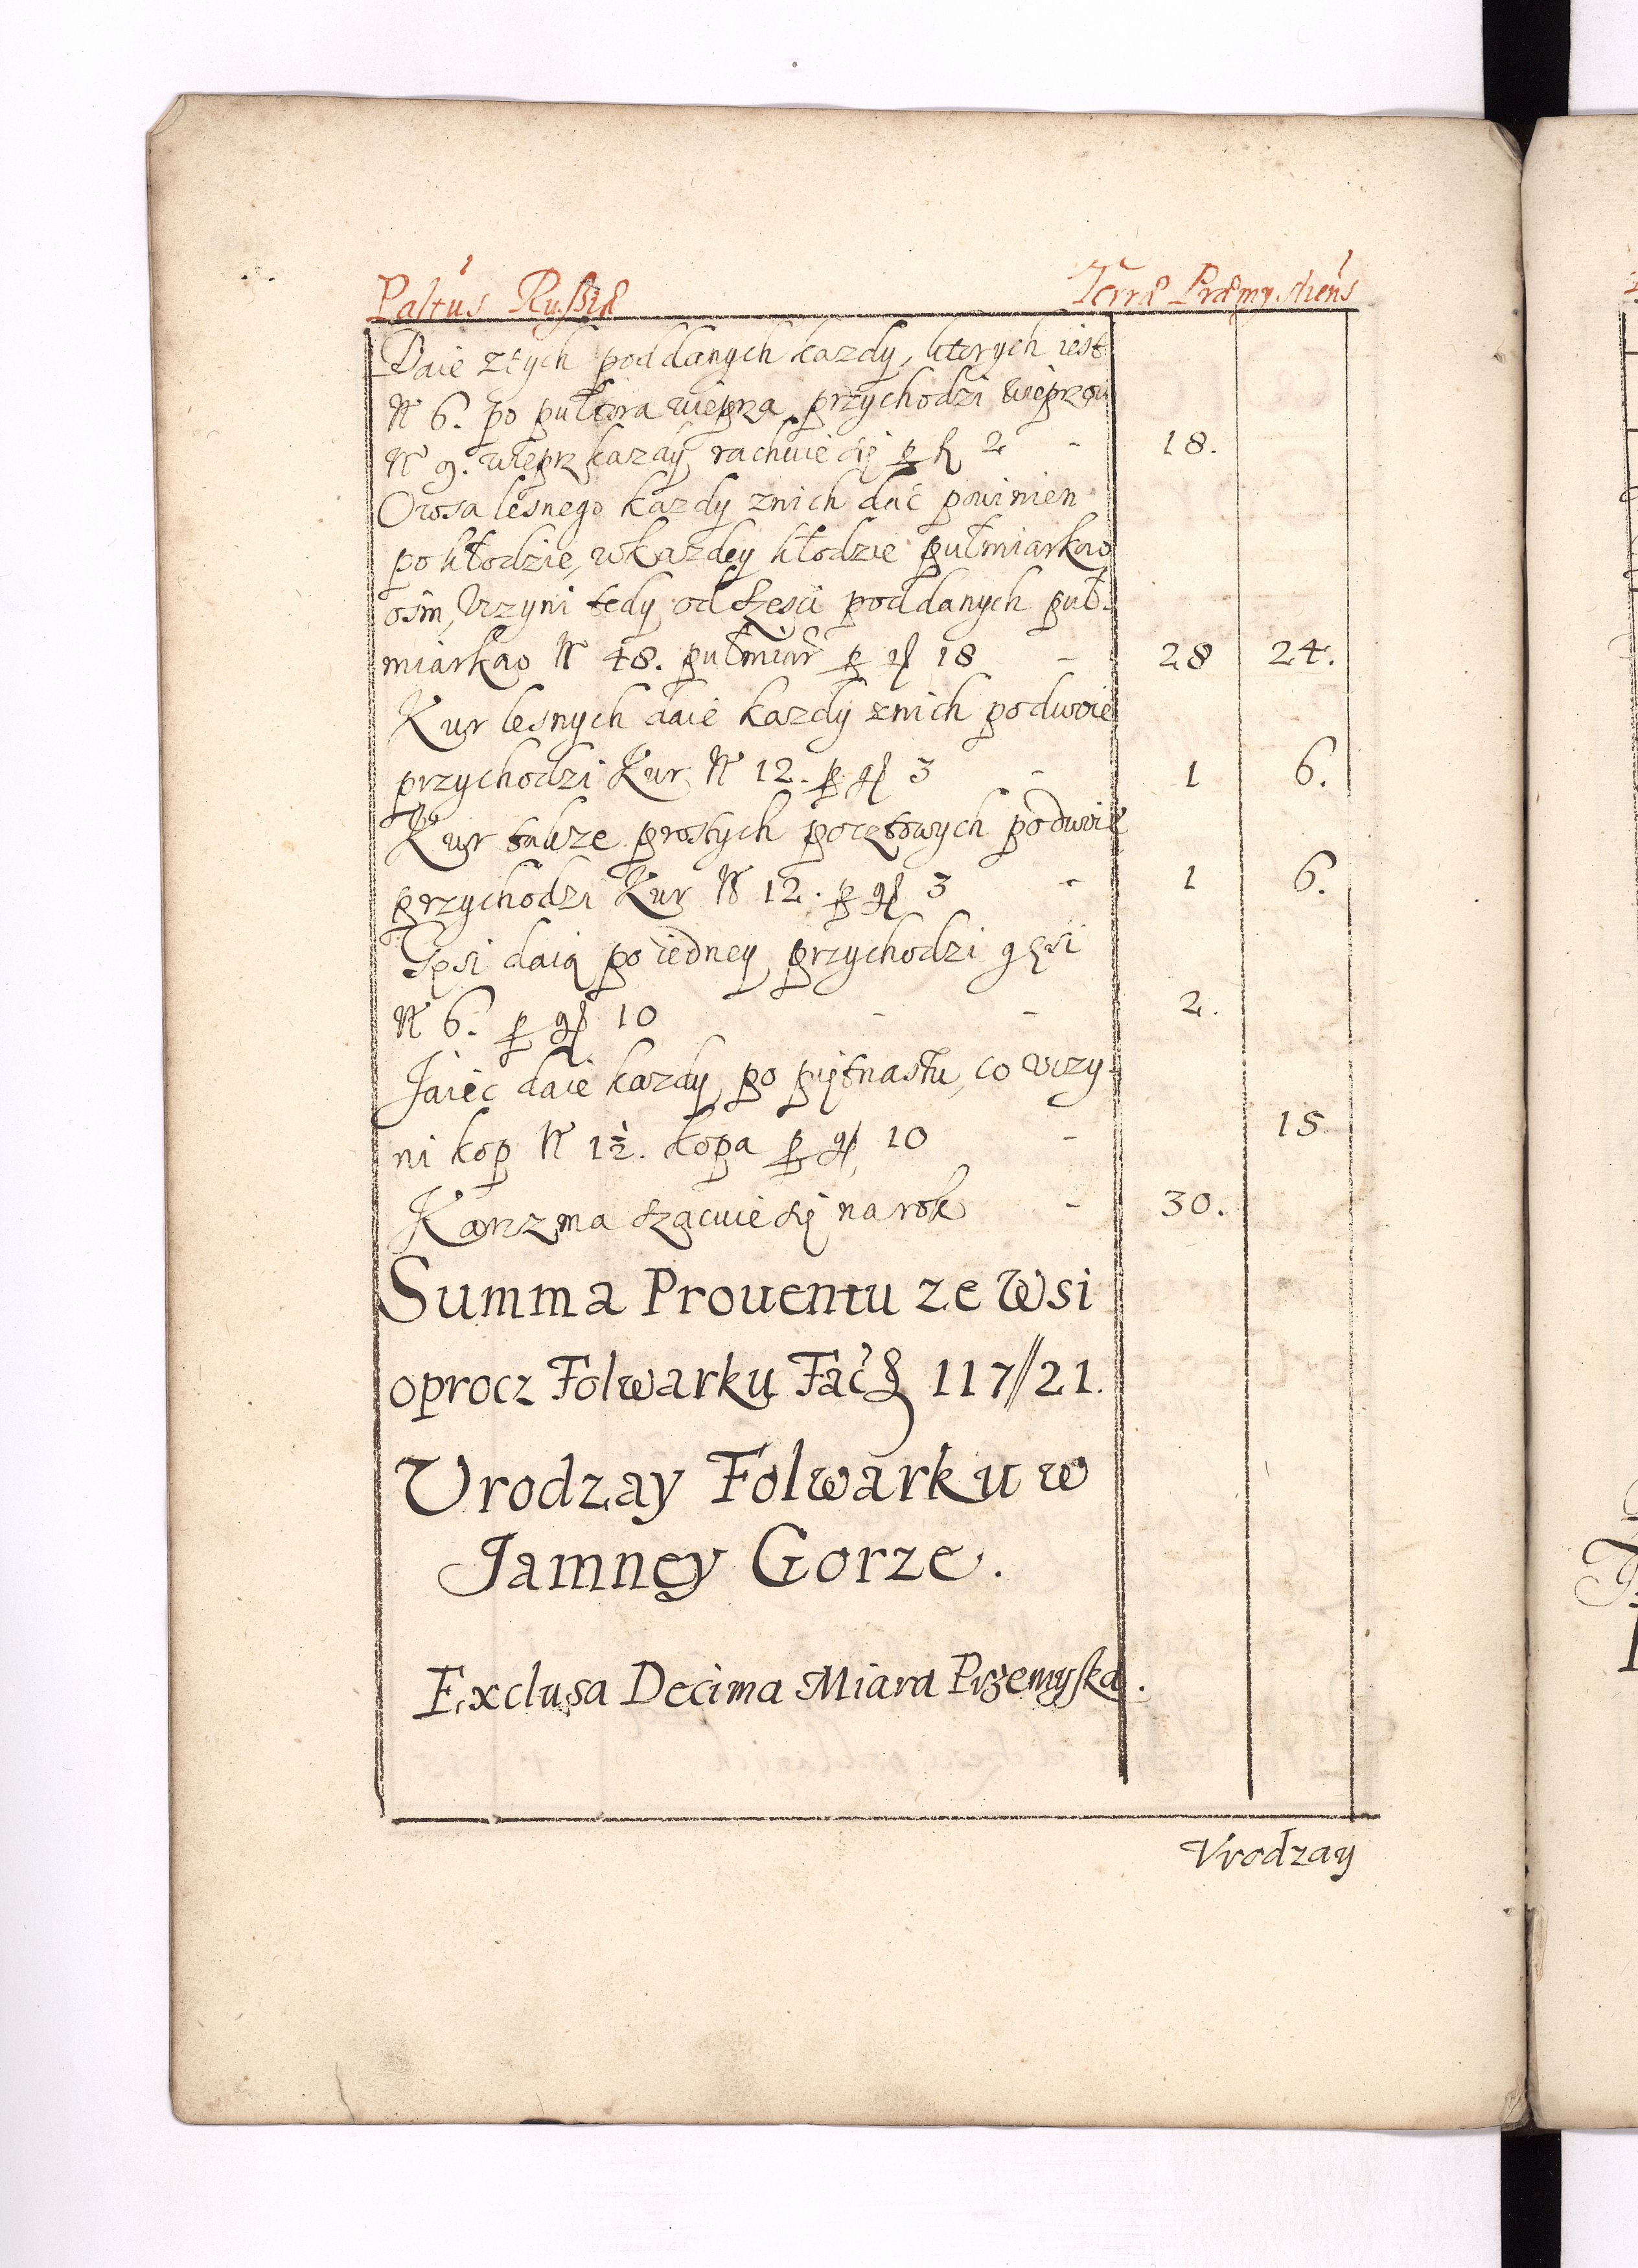 Paltus Russiæ Terræ Præmysliens
Daie ztych poddanych kazdy, ktorych iest
N 6. po pułtora wieprza przychodzi wieprzow
N 9. wieprz kazdy rachuie się p fl 2 - 18.
Owsa lesnego kazdy znich dać powinien
po kłodzie, wkazdey kłodzie pułmiarkow
osm, Vczyni tedy od szesci poddanych puł-
miarkow N 48. pułmiar p gl 18 - 28 24.
Kur lesnych daie kazdy znich podwoie
przychodzi Kur N 12. p gl 3 - 1 6.
Kur takze prostych pocztowych podwoie
przychodzi Kur N 12. p gl 3 - 1 6.
Gęsi daią po iedney przychodzi gęsi
N 6. p gl 10 - - 2.
Jaiec daie kazdy po piętnastu, co vczy-
ni kop N 1½. kopa p gl 10 - 15
Karczma szacuie się na rok - 30.
Summa Prouentu ze Wsi
oprocz Folwarku Fac fl 117//21.
Vrodzay Folwarku w
Jamney Gorze.
Exclusa Decima Miara Przemyska.
Vrodzay